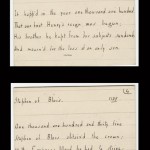 It happ'd in the year one thousand one hundred
That our best Henry's reign was begun,
His brother he kept from his subjects sundered
And mourn'd for the loss of an only son.
16
Stephen of Blois. 1135
One thousand one hundred and thirty five
Stephen of Blois obtained the crown,